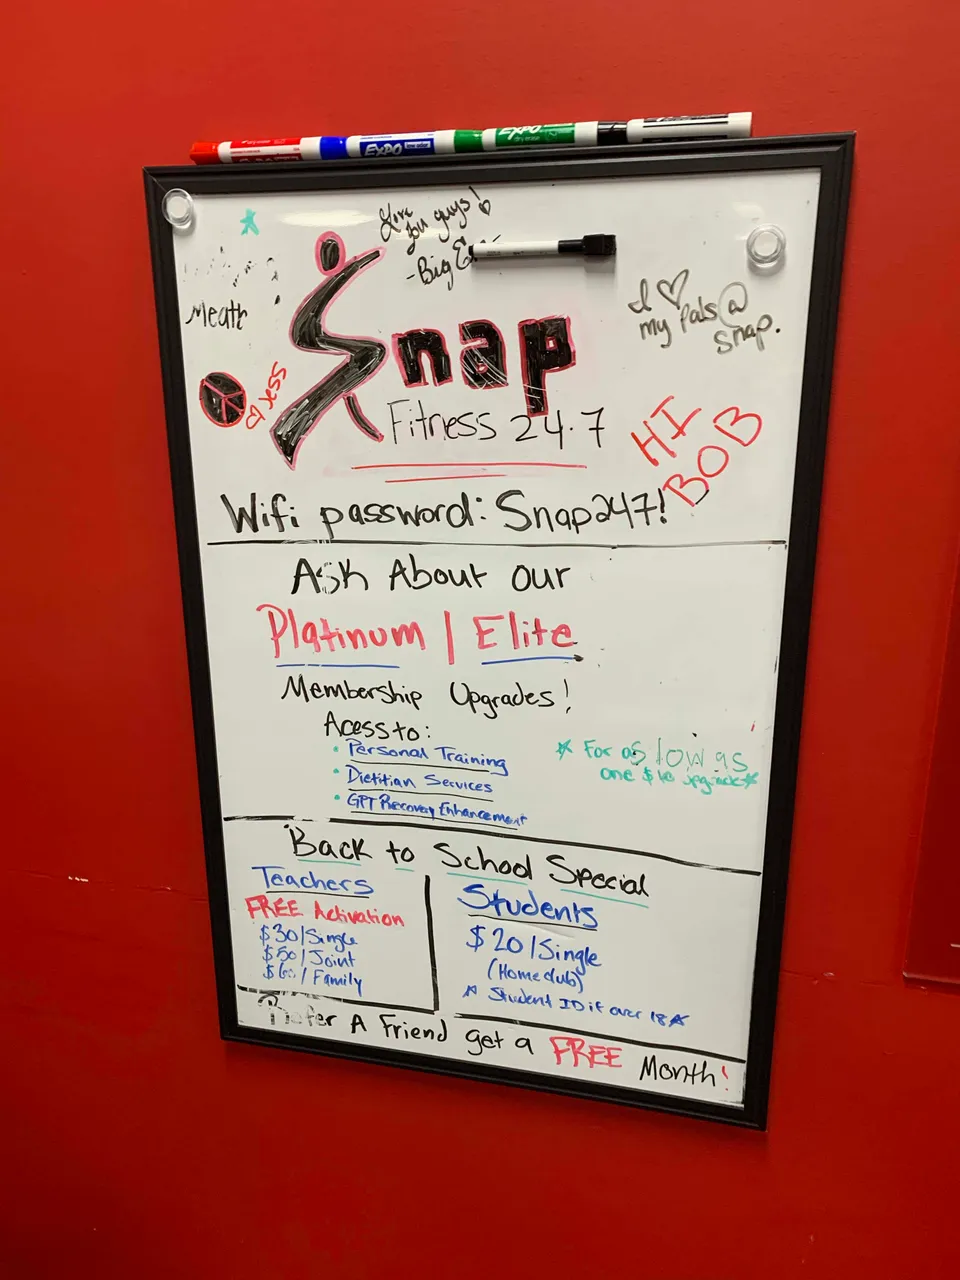 EXPO
EXPO
Love
You guys!
-Big
Meath
I ♡
my Pals @
Snap.
Snap
Jess
Fitness 24·7
HI
BOB
Wifi password: Snap247!
Ask About our
Platinum | Elite
Membership Upgrades!
Acess to:
• Personal Training
• Dietitian Services
• GPT Recovery Enhancement
For as low as
one $10 upgrade
Back to School Special
Teachers
FREE Activation
$30/Single
$50/Joint
/ Family
Students
$20/Single
(Home club)
Student ID if over 18
Refer A Friend get a FREE Month!